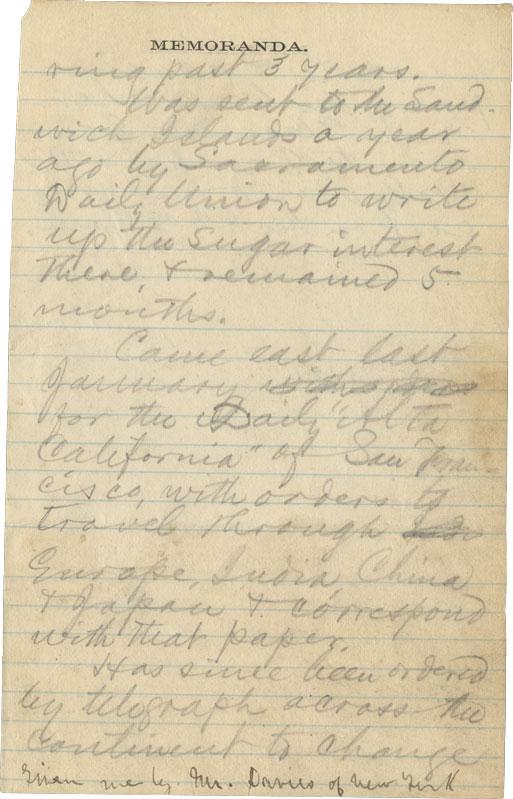 MEMORANDA.
ring past 3 years.
Was sent to the Sand-
wich Islands a year
ago by Sacramento
Daily Union to write
up the sugar interest
there, & remained 5
months.
Came east last
January
for the "Daily Alta
California" of San Fran-
cisco, with orders to
travel through
Europe, India, China
& Japan & correspond
with that paper.
Has since been ordered
by telegraph across the
continent to change
Given me by Mr. Davies of New York